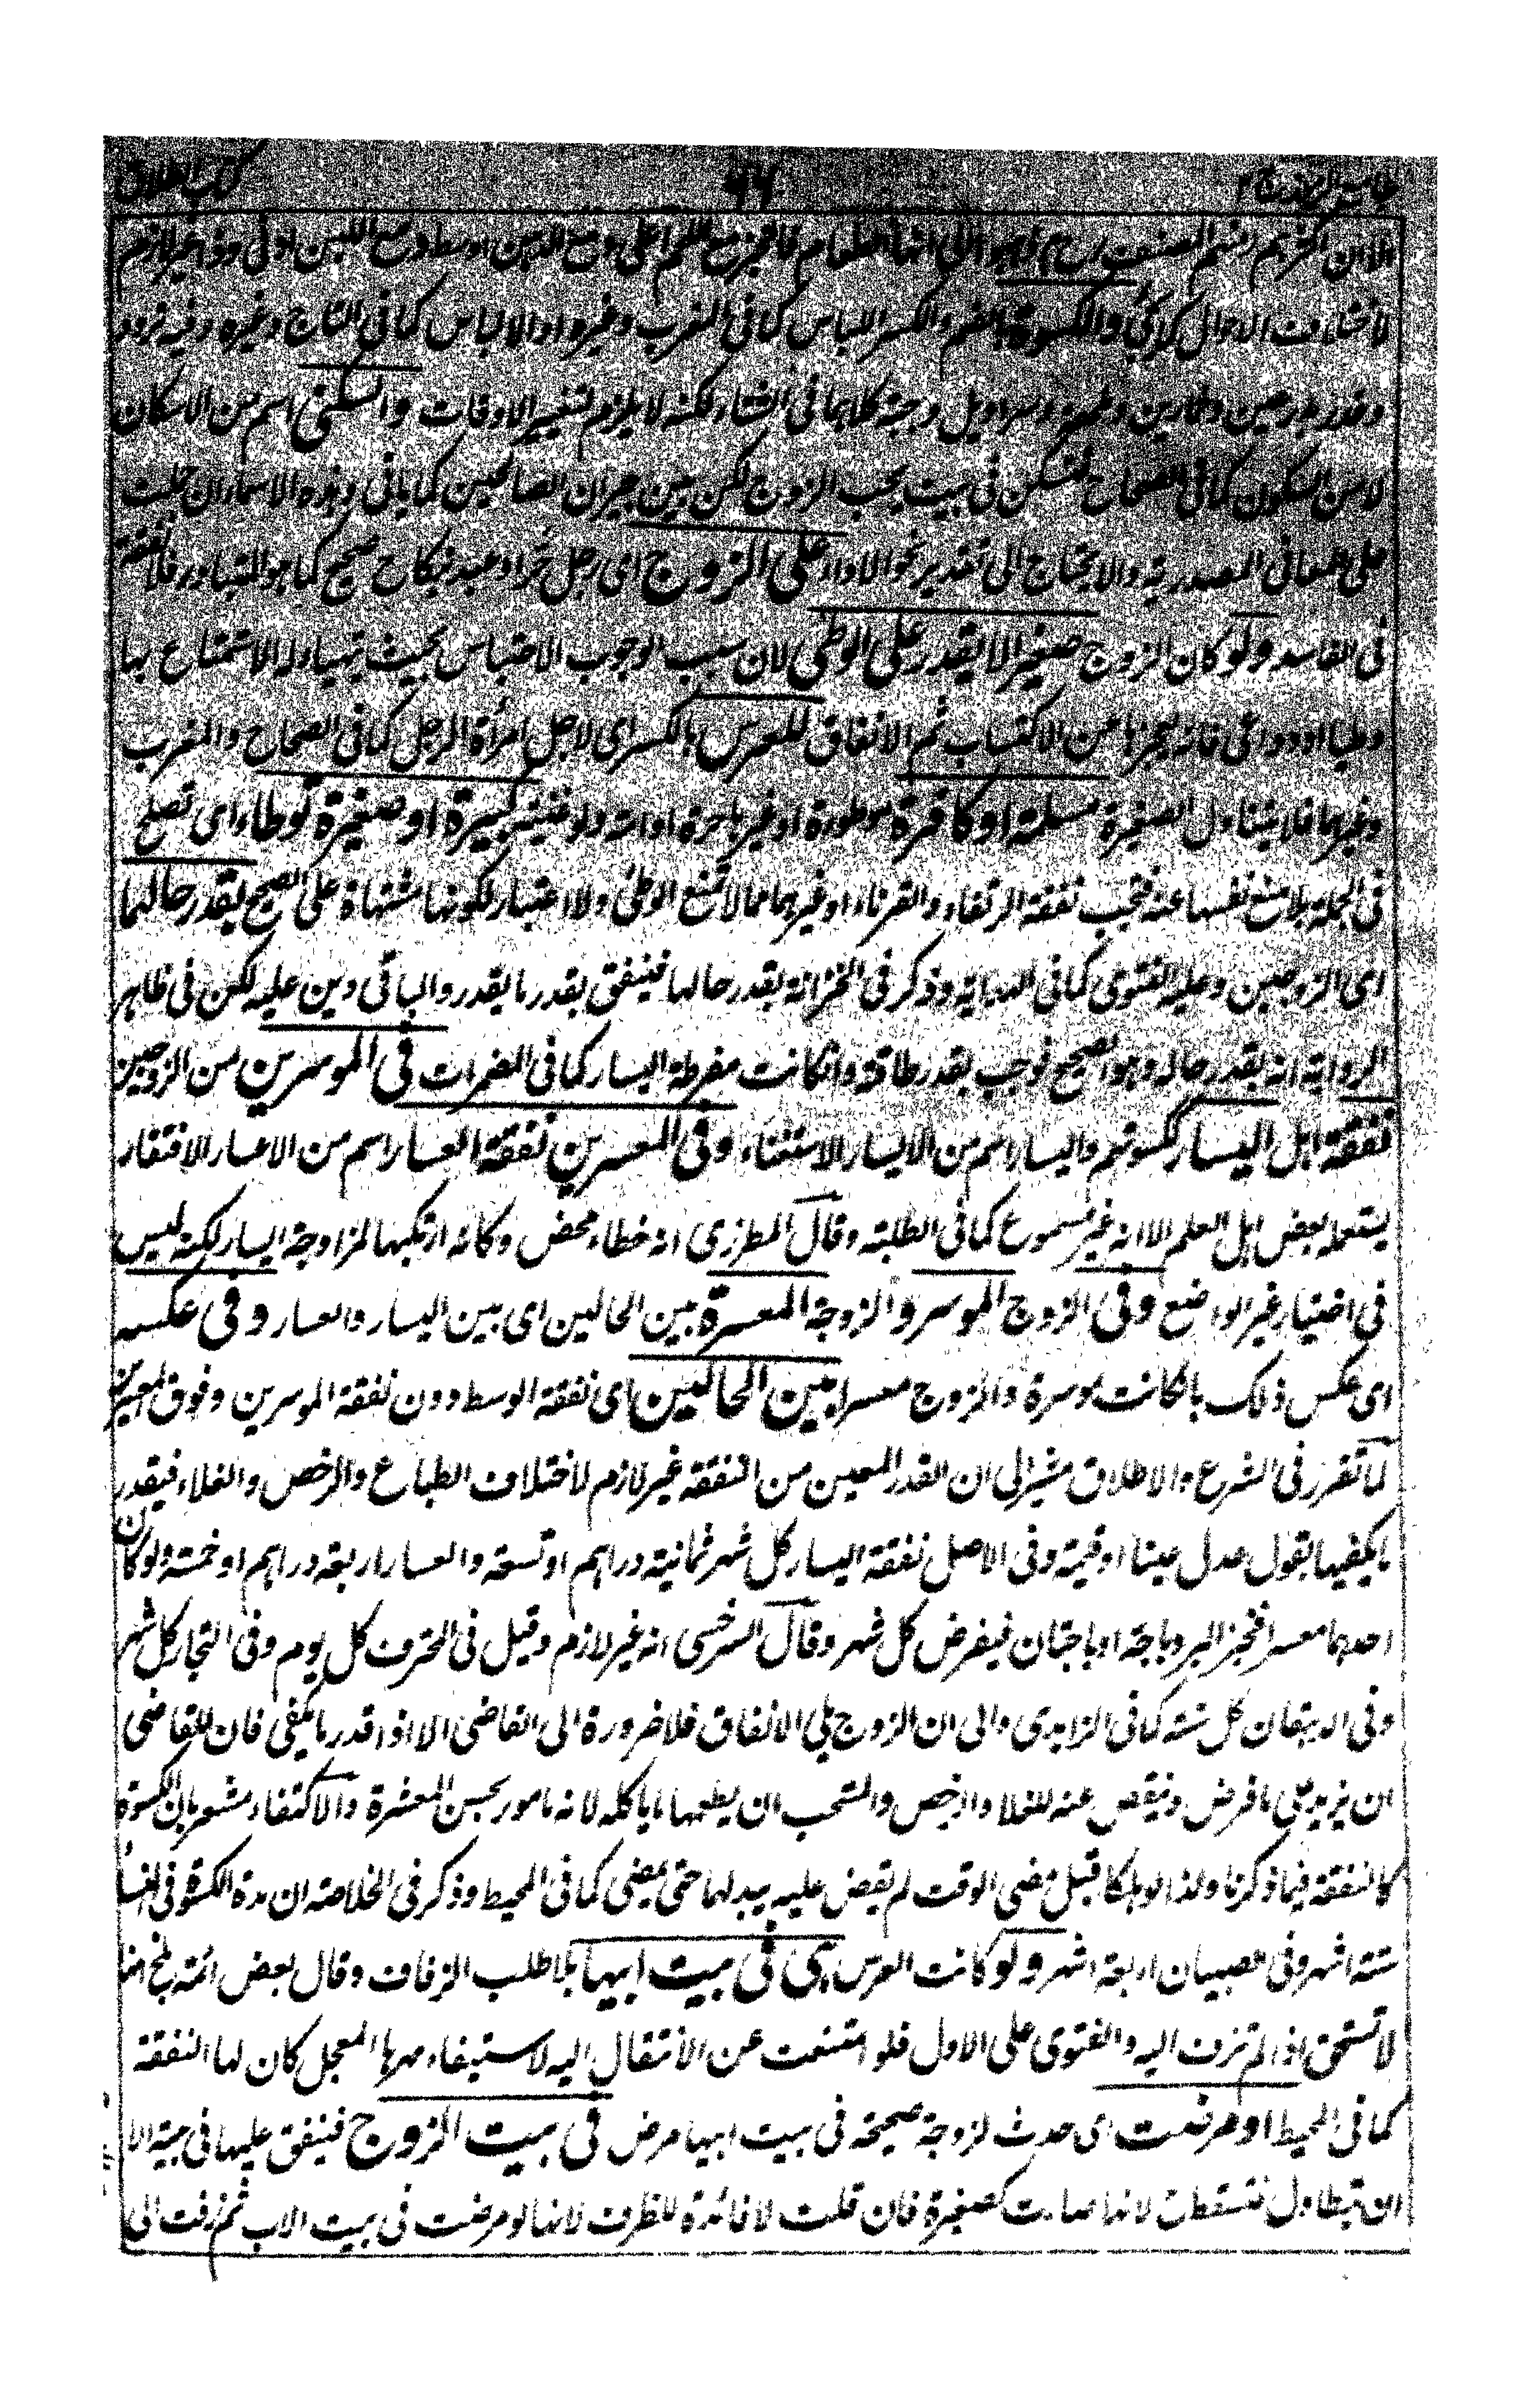 كتاب الطلاق
لاختلاف الاحوال كما يأتى والكسوة بالضم والكسر اللباس كما فى المغرب وغيره او الالباس كما فى التاج وغيره وفيه نزود
وسراويل وجبة كلاهما فى الشتاء لكنه لا يلزم لتغيير الاوقات والسكنى اسم من الاسكان
لا من السكون كما فى الصحاح فتسكن فى بيت يحب الزوج لكن بين جيران الصالحين كما يأتى وهذه الاسماء ان حملت
على المعانى المصدرية والا يحتاج الى تقدير نحو الاداء على الزوج اى رجل حرا وعبد بنكاح صحيح كما هو المتبادر فلا نفقة
فى الفاسد ولو كان الزوج صغيرا لا يقدر على الوطى لان سبب الوجوب الاحتباس بحيث يتهياء له الاستمتاع بها
وطيا او دواعى فانه يعجزها عن الاكتساب ثم الانفاق للعرس بالكسر اى لاجل امرأة الرجل كما فى الصحاح والمغرب
وغيرهما فلا يتناول الصغيرة مسلمة او كافرة موطوءة او غيرها حرة او امة ولو غنية كبيرة او صغيرة توطاء اى تصلح
فى الجملة بلا منع نفسها عنه فتجب نفقة الرتقاء والقرناء او غيرهما مما لا تمنع الوطى ولا اعتبار لكونها مشتهاة على الصحيح بقدر حالهما
اى الزوجين وعليه الفتوى كما فى الهداية وذكر فى الخزانة بقدر حالها فينفق بقدر ما يقدر والباقى دين عليه لكن فى ظاهر
الرواية انه بقدر حاله وهو الصحيح فوجب بقدر طاقته وان كانت مفرطة اليسار كما فى المضمرات فى الموسرين من الزوجين
نفقة اهل اليسار ككسوتهم واليسار اسم من الايسار الاستغناء وفى المعسرين نفقة العسار اسم من الاعسار الافتقار
يستعمله بعض اهل العلم الا انه غير مسموع كما فى الطلبة وقال المطرزى انه خطاء محض وكانه ارتكبها لمزاوجة اليسار لكنه ليس
فى اختيار غير الواضع وفى الزوج الموسر والزوجة المعسرة بين الحالين اى بين اليسار والعسار وفى عكسه
اى عكس ذلك بان كانت موسرة والزوج معسرا بين الحالين اى نفقة الوسط دون نفقة الموسرين وفوق المعسرين
لما تقرر فى الشرع والاطلاق مشير الى ان القدر المعين من النفقة غير لازم لاختلاف الطباع والرخص والغلاء فيقدر
ما يكفيها بقول عدل عينا او قيمة وفى الاصل نفقة اليسار كل شهر ثمانية دراهم او تسعة والعسار اربعة دراهم او خمسة ولو كان
احدهما معسرا فخبز البر وباجة او باجتان فيفرض كل شهر وقال السرخسى انه غير لازم وقيل فى المحترف كل يوم وفى التجار كل شهر
وفى الدهقان كل سنة كما فى الزاهدى والى ان الزوج يلى الانفاق فلا ضرورة الى القاضى الا اذا قدر ما يكفى فان للقاضى
ان يزيد على ما فرض وينقص عنه للغلاء والرخص والمستحب ان يطعمها ما ياكله لانه مامور بحسن المعشرة والاكتفاء مشعر بان الكسوة
كالنفقة فيما ذكرنا ولذا لو هلكا قبل مضى الوقت لم يقض عليه ببدلها حتى يمضى كما فى المحيط وذكر فى الخلاصة ان مدة الكسوة فى النساء
ستة اشهر وفى الصبيان اربعة اشهر ولو كانت العرس هى فى بيت ابيها بلا طلب الزفاف وقال بعض ائمة بلخ انها
لا تستحق اذا لم تزف اليه والفتوى على الاول فلو امتنعت عن الانتقال اليه لاستيفاء مهرها المعجل كان لها النفقة
كما فى المحيط او مرضت اى حدث لزوجة صحيحة فى بيت ابيها مرض فى بيت الزوج فينفق عليها فى بيته الا
ان تيطاول فتسقط لانها صارت كصغيرة فان قلت لا فائدة للظرف لانها لو مرضت فى بيت الاب ثم زفت الى